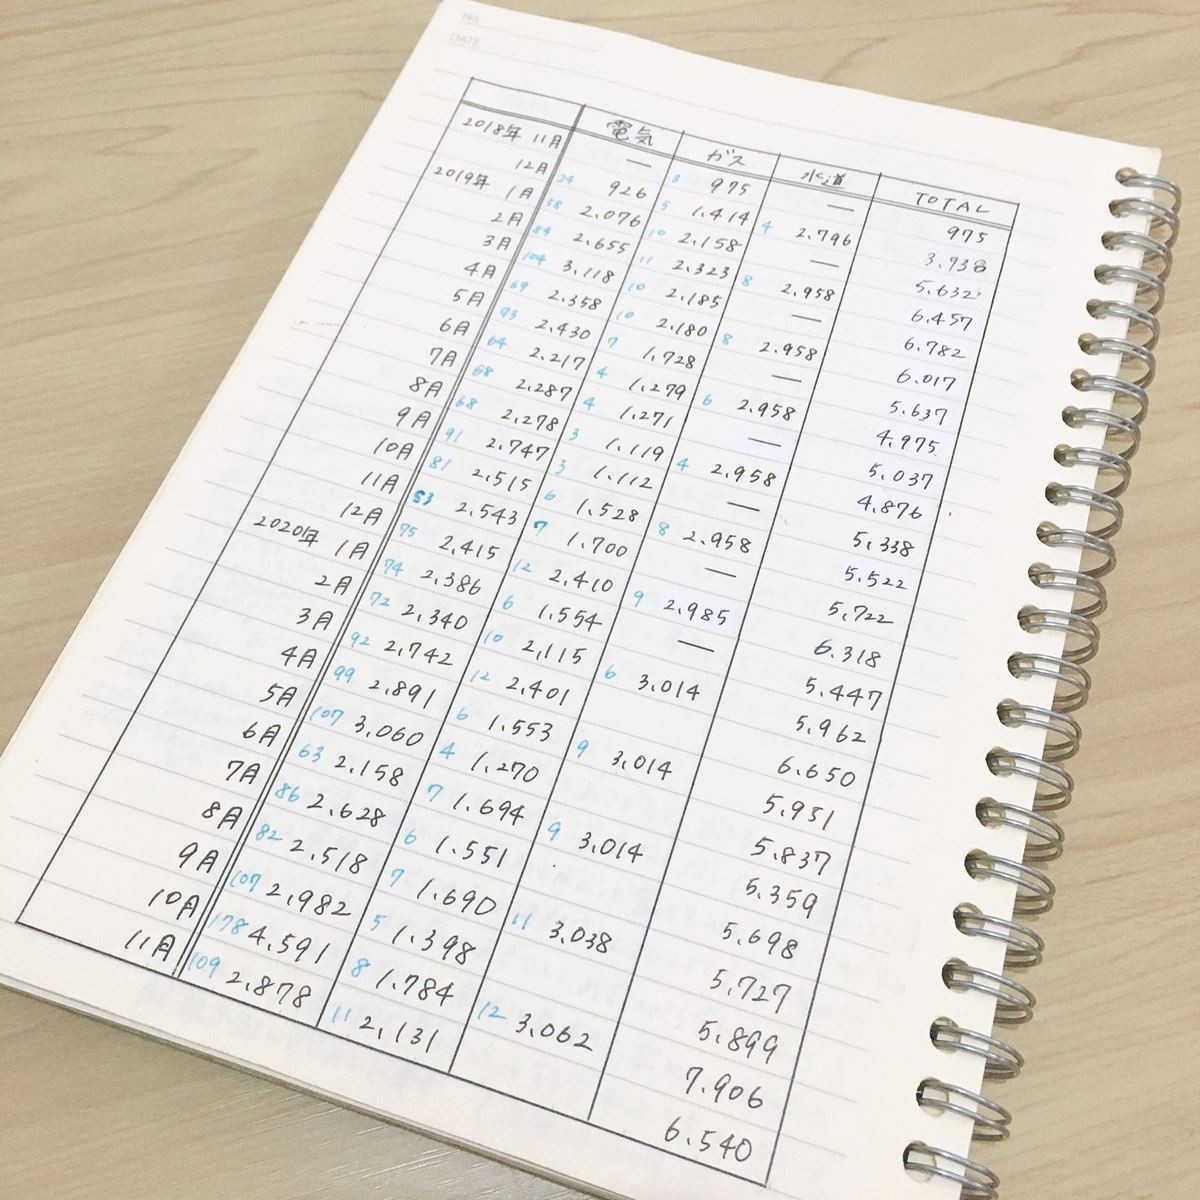 No.
DATE
電気 ガス 水道 TOTAL
2018年 11月 — 3 975 — 975
12月 24 926 5 1.414 4 2.796 3.738
2019年 1月 58 2.076 10 2.158 — 5.632
2月 84 2.655 11 2.323 8 2.958 6.457
3月 104 3.118 10 2.185 — 6.782
4月 69 2.358 10 2.180 8 2.958 6.017
5月 73 2.430 7 1.728 — 5.637
6月 64 2.217 4 1.279 6 2.958 4.975
7月 68 2.287 4 1.271 — 5.037
8月 68 2.278 3 1.119 4 2.958 4.876
9月 91 2.747 3 1.112 — 5.338
10月 81 2.515 6 1.528 8 2.958 5.522
11月 83 2.543 7 1.700 — 5.722
12月 75 2.415 12 2.410 9 2.985 6.318
2020年 1月 74 2.386 6 1.554 — 5.447
2月 72 2.340 10 2.115 6 3.014 5.962
3月 92 2.742 12 2.401 6.650
4月 99 2.891 6 1.553 9 3.014 5.951
5月 107 3.060 4 1.270 5.837
6月 63 2.158 7 1.694 9 3.014 5.359
7月 86 2.628 6 1.551 5.698
8月 82 2.518 7 1.690 11 3.038 5.727
9月 107 2.982 5 1.398 5.899
10月 178 4.591 8 1.784 12 3.062 7.906
11月 109 2.878 11 2.131 6.540